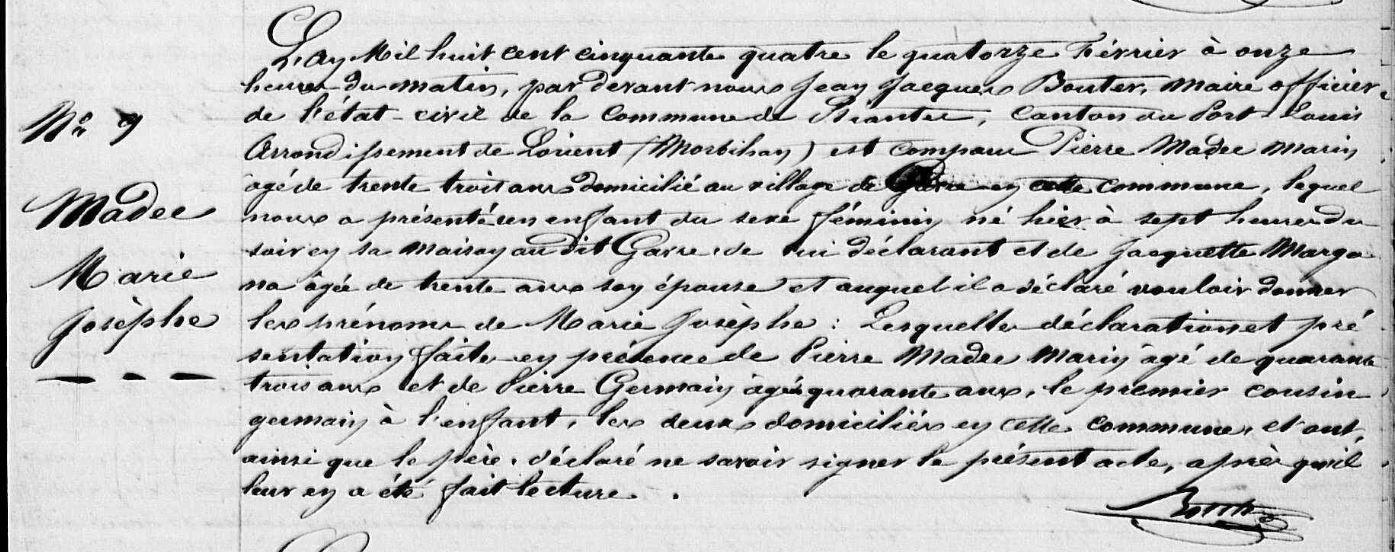 L'an Mil huit cent cinquante quatre le quatorze Février à onze
heures du matin, par devant nous Jean Jacques Bouter, Maire officier
de l'état-civil de la Commune de Riantec, Canton du Port-Louis
N° 9
Arrondissement de Lorient (Morbihan) est comparu Pierre Madec Marin
agé de trente trois ans domicilié au village de en cette commune, lequel
Madec
nous a présenté un enfant du sexe féminin né hier à sept heures du
soir en sa maison au dit Gavre de lui déclarant et de Jacquette Marga
Marie
na âgée de trente ans son épouse et auquel il a déclaré vouloir donner
Josèphe
les prénoms de Marie Josèphe : Lesquelles déclaration et pré
sentation faites en présence de Pierre Madec Marin âgé de quarante
trois ans et de Pierre Germain âgé quarante ans, le premier cousin
germain à l'enfant, les deux domiciliés en cette commune, et ont,
ainsi que le père, déclaré ne savoir signer le présent acte, après qu'il
leur en a été fait lecture.